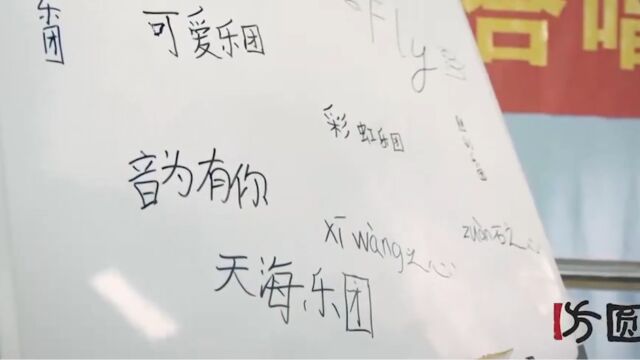 乐团
可爱乐团
Fly
合唱
彩虹乐团
音为有你
xī wàng之心
zuàn石之心
天海乐团
方圆